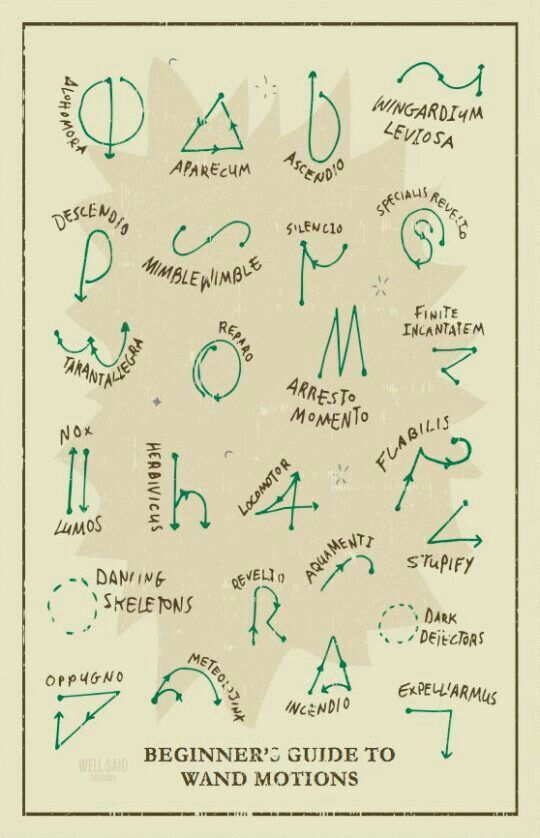 ALOHOMORA
APARECUM
ASCENDIO
WINGARDIUM
LEVIOSA
DESCENDIO
MIMBLEWIMBLE
SILENCIO
SPECIALIS REVELIO
TARANTALLEGRA
REPARO
ARRESTO
MOMENTO
FINITE
INCANTATEM
NOX
LUMOS
HERBIVICUS
LOCOMOTOR
FLABILIS
STUPIFY
DANCING
SKELETONS
REVELIO
AQUAMENTI
DARK
DETECTORS
OPPUGNO
METEOLOJINX
INCENDIO
EXPELLIARMUS
WELL SAID
BEGINNER'S GUIDE TO
WAND MOTIONS